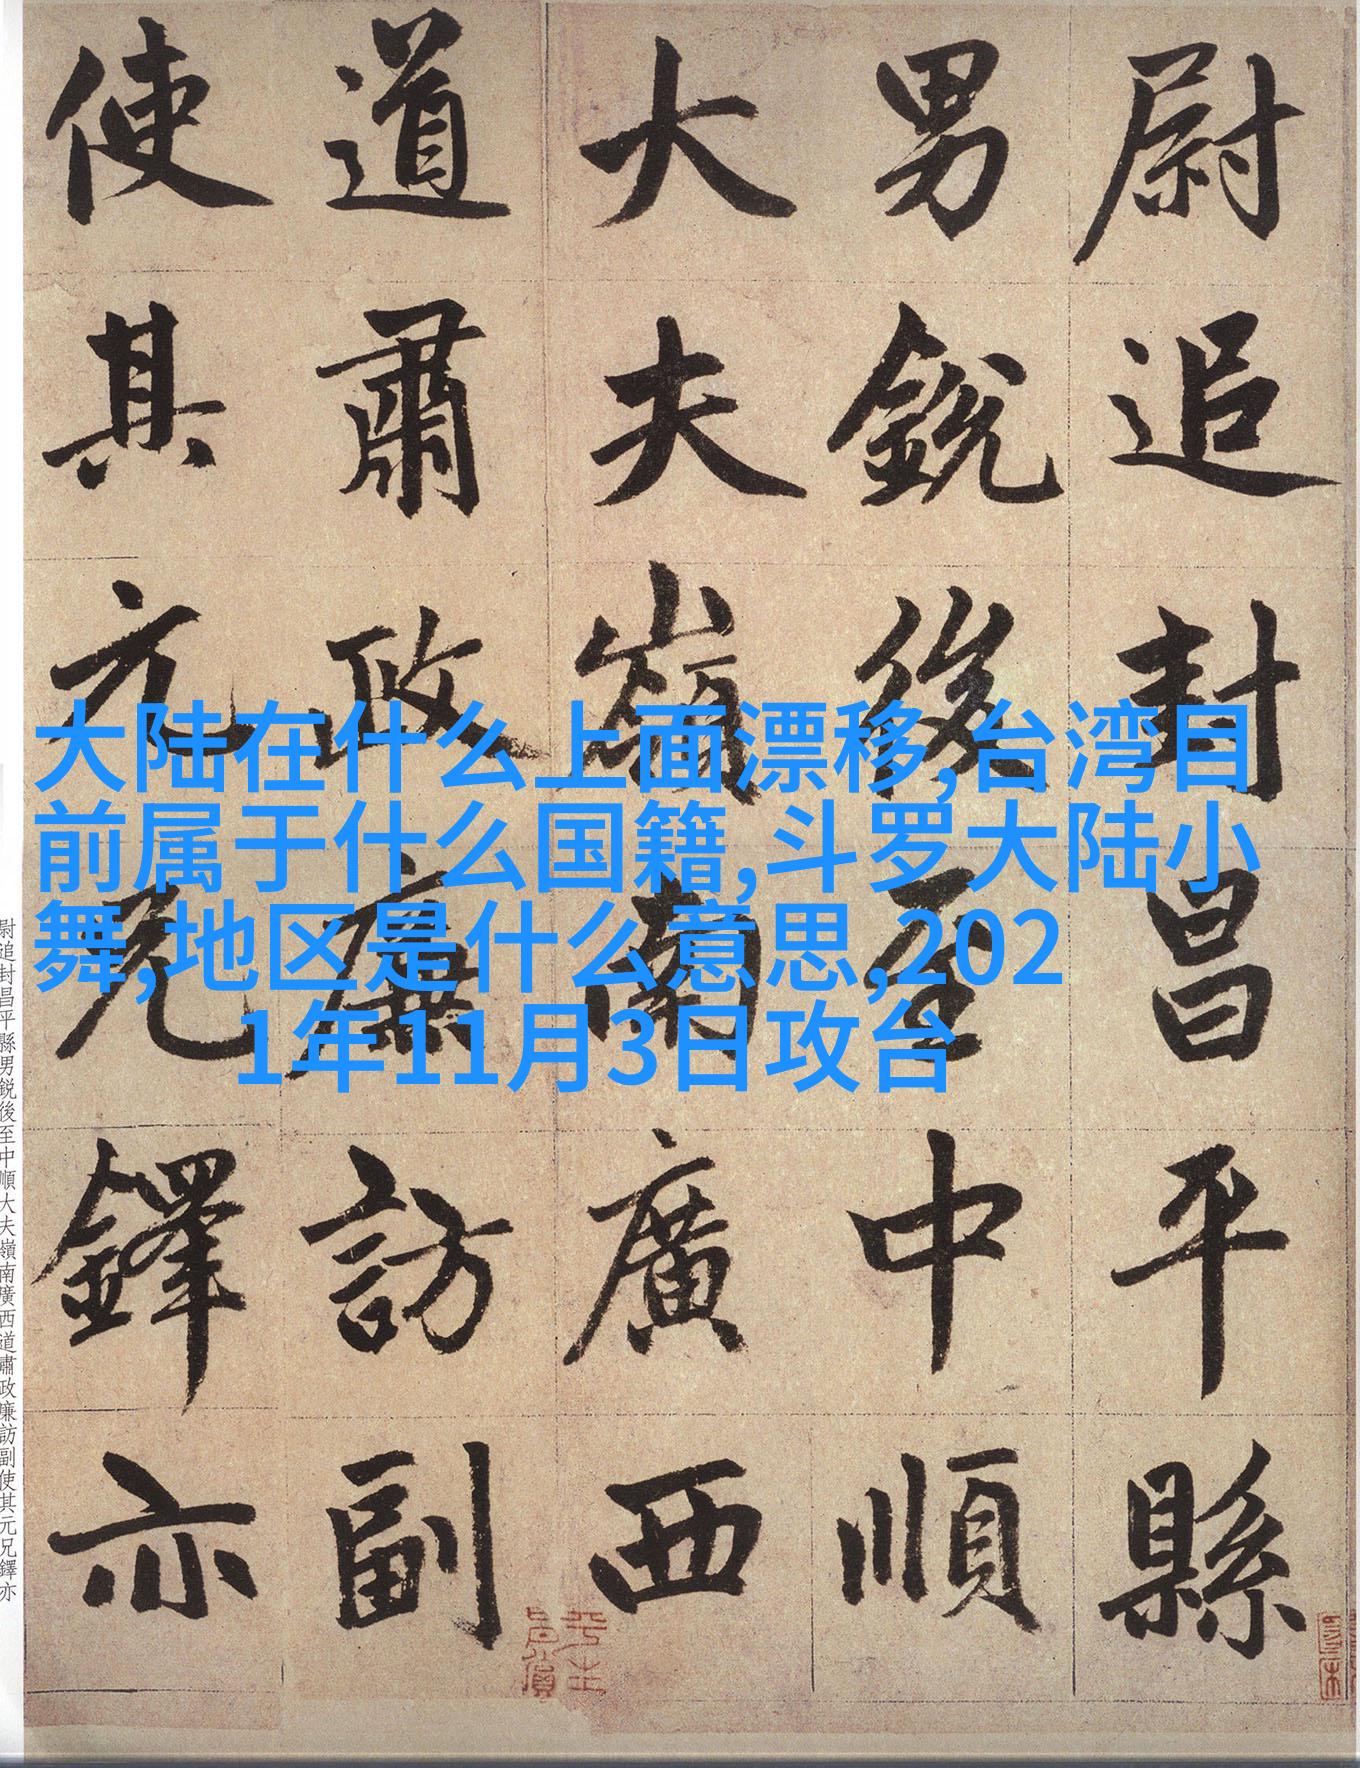 尉追封昌平縣
男銳後至中順
大夫嶺南廣西
道肅政廉訪副
使其元兄鐸亦
大陆在什么上面漂移,台湾目
前属于什么国籍,斗罗大陆小
舞,地区是什么意思,202
1年11月3日攻台
尉追封昌平縣男銳後至中順大夫嶺南廣西道肅政廉訪副使其元兄鐸亦